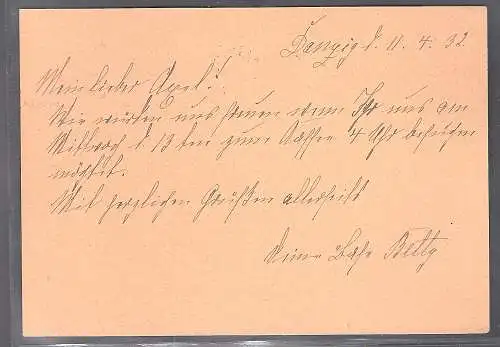 Danzig d. 11. 4. 32.
Mein lieber Axel!
Wir würden uns freuen wenn Ihr uns am
Mittwoch d 13 ten zum Kaffee 4 Uhr besuchen
möchtet.
Mit herzlichen Grüßen allerseits
Deine Base Betty